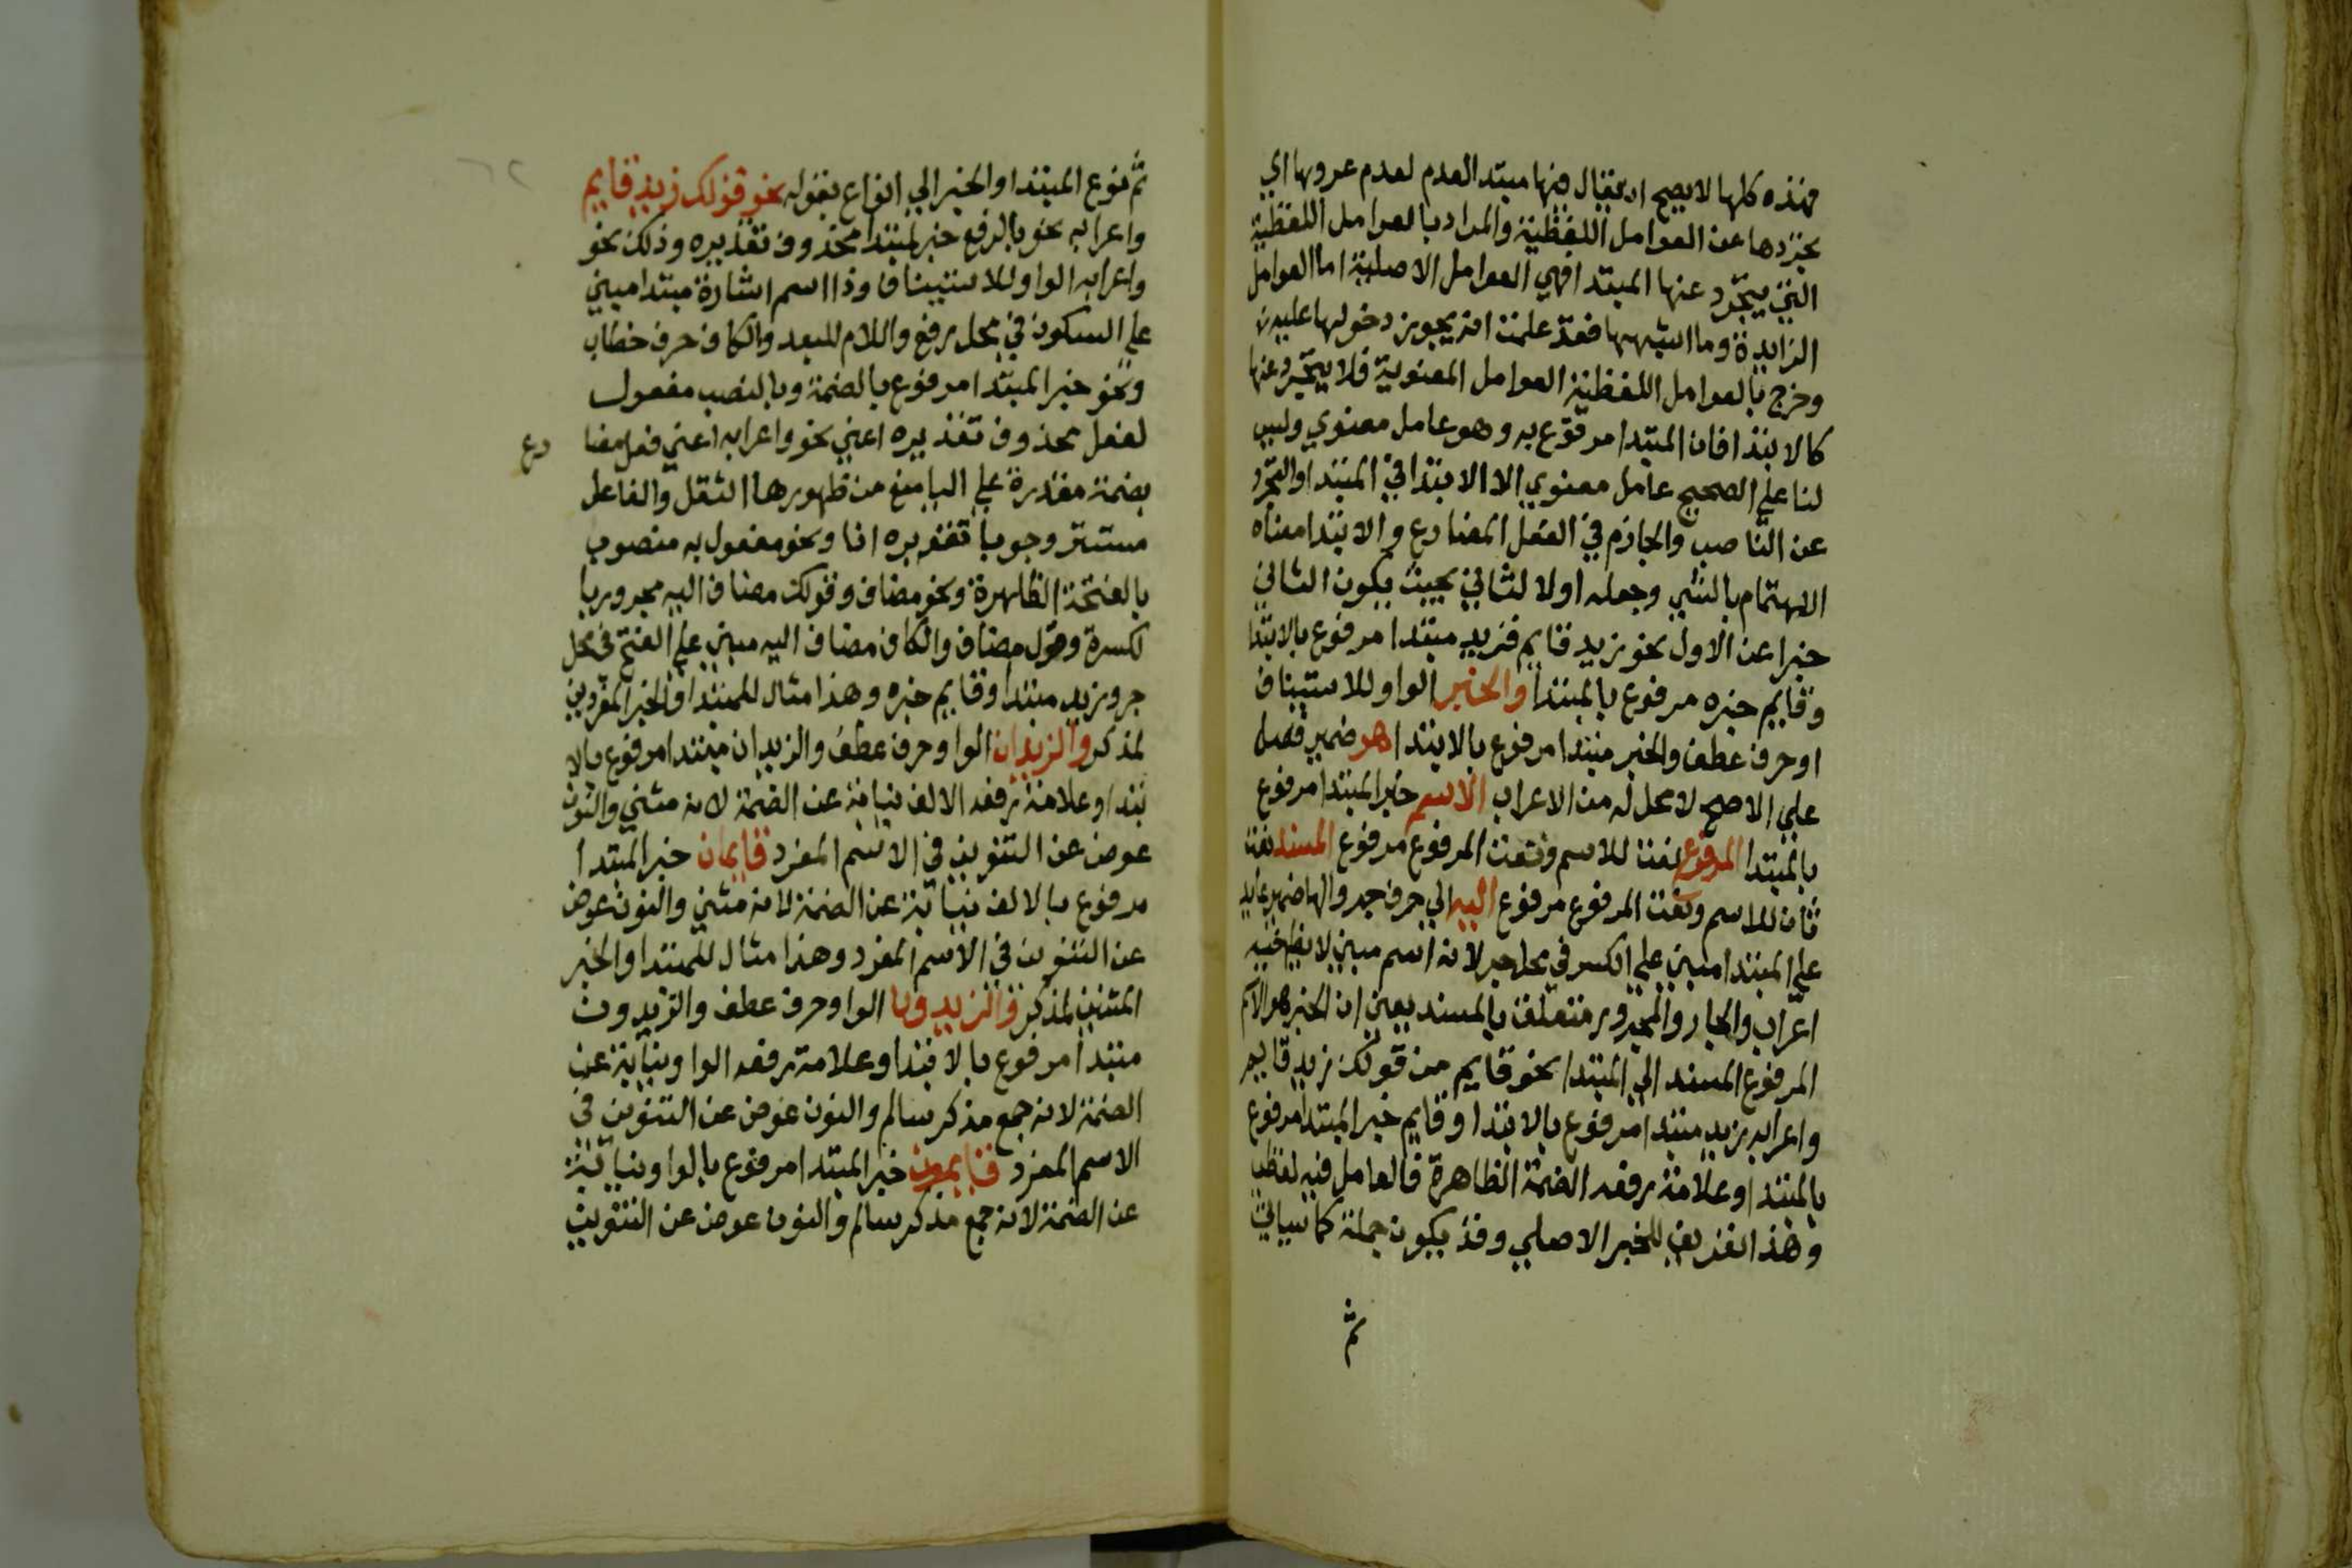 فهذه كلها لا يصح ان يقال فيها مبتدا لعدم لعدم عروها اي
تجردها عن العوامل اللفظية والمراد بالعوامل اللفظية
التي يتجرد عنها المبتدا فهي العوامل الاصلية اما العوامل
الزايدة وما اشبهها فقد علمت انه يجوز دخولها عليه
وخرج بالعوامل اللفظية العوامل المعنوية فلا يتجرد عنها
كالابتدا فان المبتدا مرفوع به وهو عامل معنوي وليس
لنا علي الصحيح عامل معنوي الا الابتدا في المبتدا والتجرد
عن الناصب والجازم في الفعل المضارع والابتدا معناه
الاهتمام بالشي وجعله اولا لثاني بحيث يكون الثاني
خبرا عن الاول نحو زيد قايم فزيد مبتدا مرفوع بالابتدا
وقايم خبره مرفوع بالمبتدا والخبر الواو للاستيناف
او حرف عطف والخبر مبتدا مرفوع بالابتدا هو ضمير فصل
علي الاصح لا محل له من الاعراب الاسم خبر المبتدا مرفوع
بالمبتدا المرفوع نعت للاسم ونعت المرفوع مرفوع المسند نعت
ثان للاسم ونعت المرفوع مرفوع اليه الي حرف جر والها ضمير عايد
علي المبتدا مبني علي الكسر في محل جر لانه اسم مبني لا يظهر فيه
اعراب والجار والمجرور متعلق بالمسند يعني ان الخبر هو الاسم
المرفوع المسند الي المبتدا نحو قايم من قولك زيد قايم
واعرابه زيد مبتدا مرفوع بالابتدا وقايم خبر المبتدا مرفوع
بالمبتدا وعلامة رفعه الضمة الظاهرة فالعامل فيه لفظي
وهذا تعريف للخبر الاصلي وقد يكون جملة كما سياتي
ثم
ثم نوع المبتدا والخبر الي انواع بقوله نحو قولك زيد قايم
واعرابه نحو بالرفع خبر لمبتدا محذوف تقديره وذلك نحو
واعرابه الواو للاستيناف وذا اسم اشارة مبتدا مبني
علي السكون في محل رفع واللام للبعد والكاف حرف خطاب
ونحو خبر المبتدا مرفوع بالضمة وبالنصب مفعول
لفعل محذوف تقديره اعني نحو واعرابه اعني فعل مضا رع
بضمة مقدرة علي اليا منع من ظهورها الثقل والفاعل
مستتر وجوبا تقديره انا ونحو مفعول به منصوب
بالفتحة الظاهرة ونحو مضاف وقولك مضاف اليه مجرور با
لكسرة وقول مضاف والكاف مضاف اليه مبني علي الفتح في محل
جر وزيد مبتدا وقايم خبره وهذا مثال للمبتدا والخبر المفردين
لمذكر والزيدان الواو حرف عطف والزيدان مبتدا مرفوع بالا
بتدا وعلامة رفعه الالف نيابة عن الضمة لانه مثني والنون
عوض عن التنوين في الاسم المفرد قايمان خبر المبتدا
مرفوع بالالف نيابة عن الضمة لانه مثني والنون عوض
عن التنوين في الاسم المفرد وهذا مثال للمبتدا والخبر
المثنيين لمذكر والزيدون الواو حرف عطف والزيدون
مبتدا مرفوع بالابتدا وعلامة رفعه الواو نيابة عن
الضمة لانه جمع مذكر سالم والنون عوض عن التنوين في
الاسم المفرد قايمون خبر المبتدا مرفوع بالواو نيابة
عن الضمة لانه جمع مذكر سالم والنون عوض عن التنوين